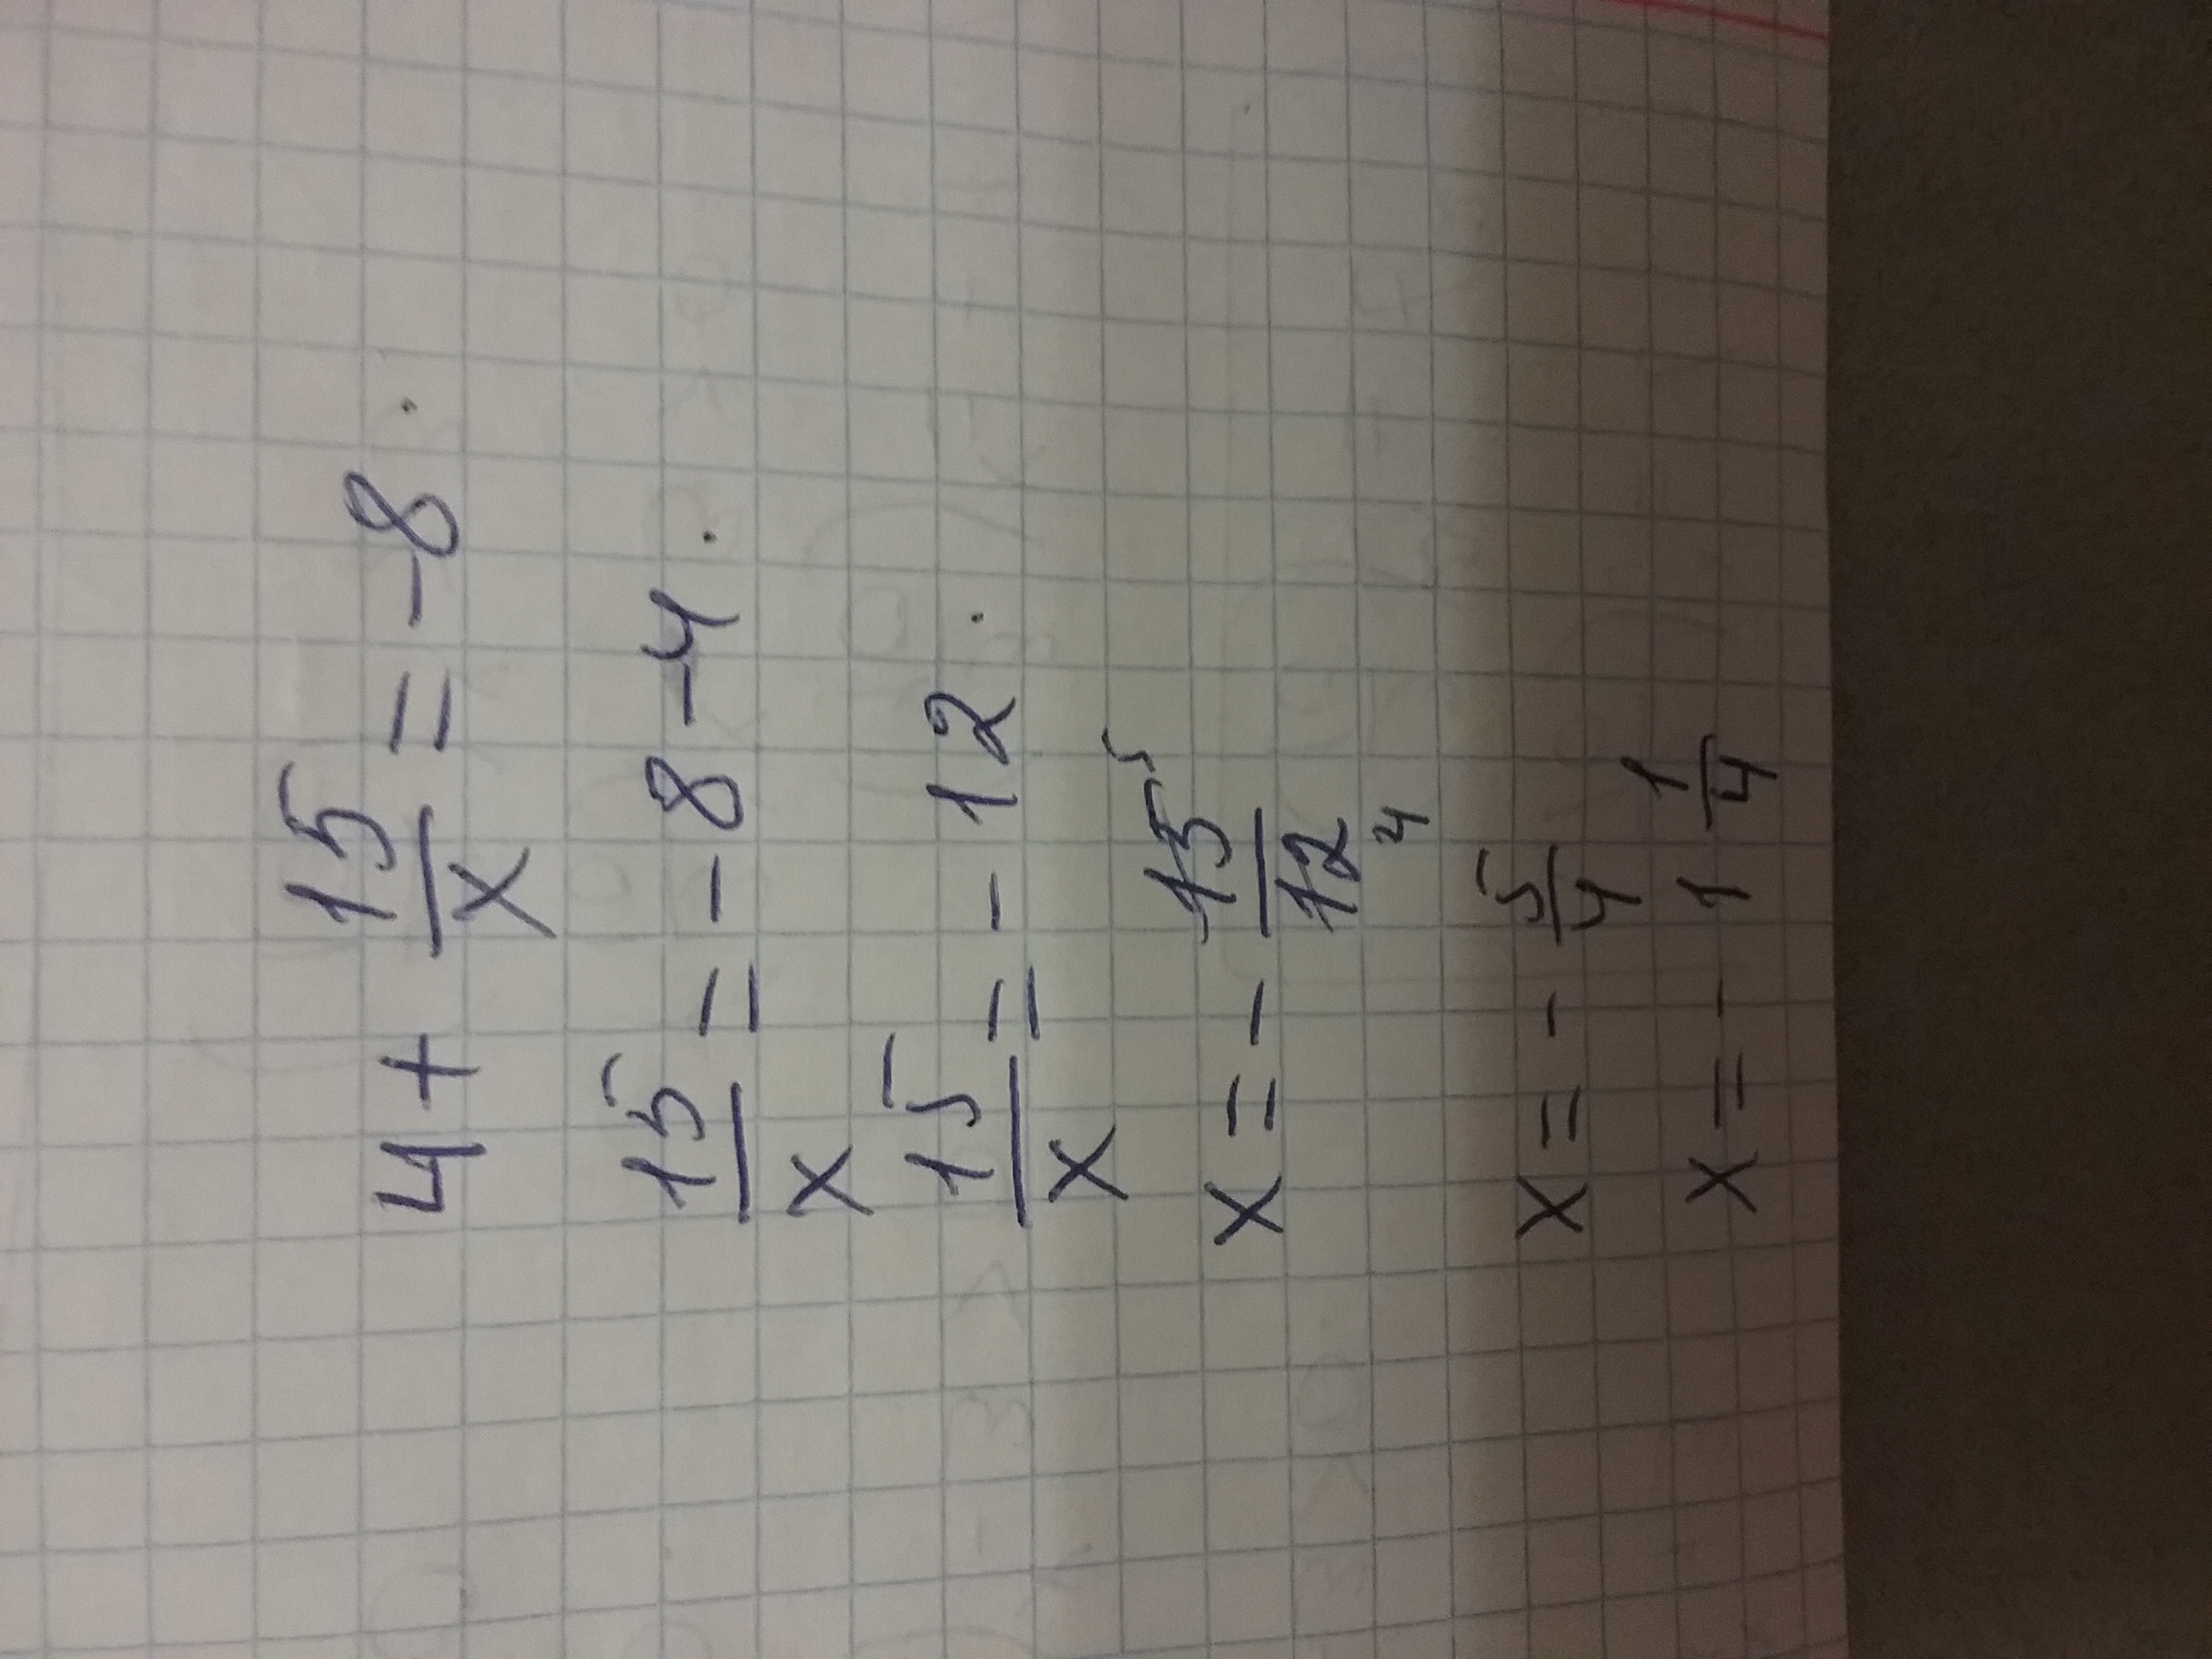 4 + 15/x = -8.
15/x = -8-4.
15/x = -12.
x = - 15⁵/12⁴
x = - 5/4
x = - 1 1/4